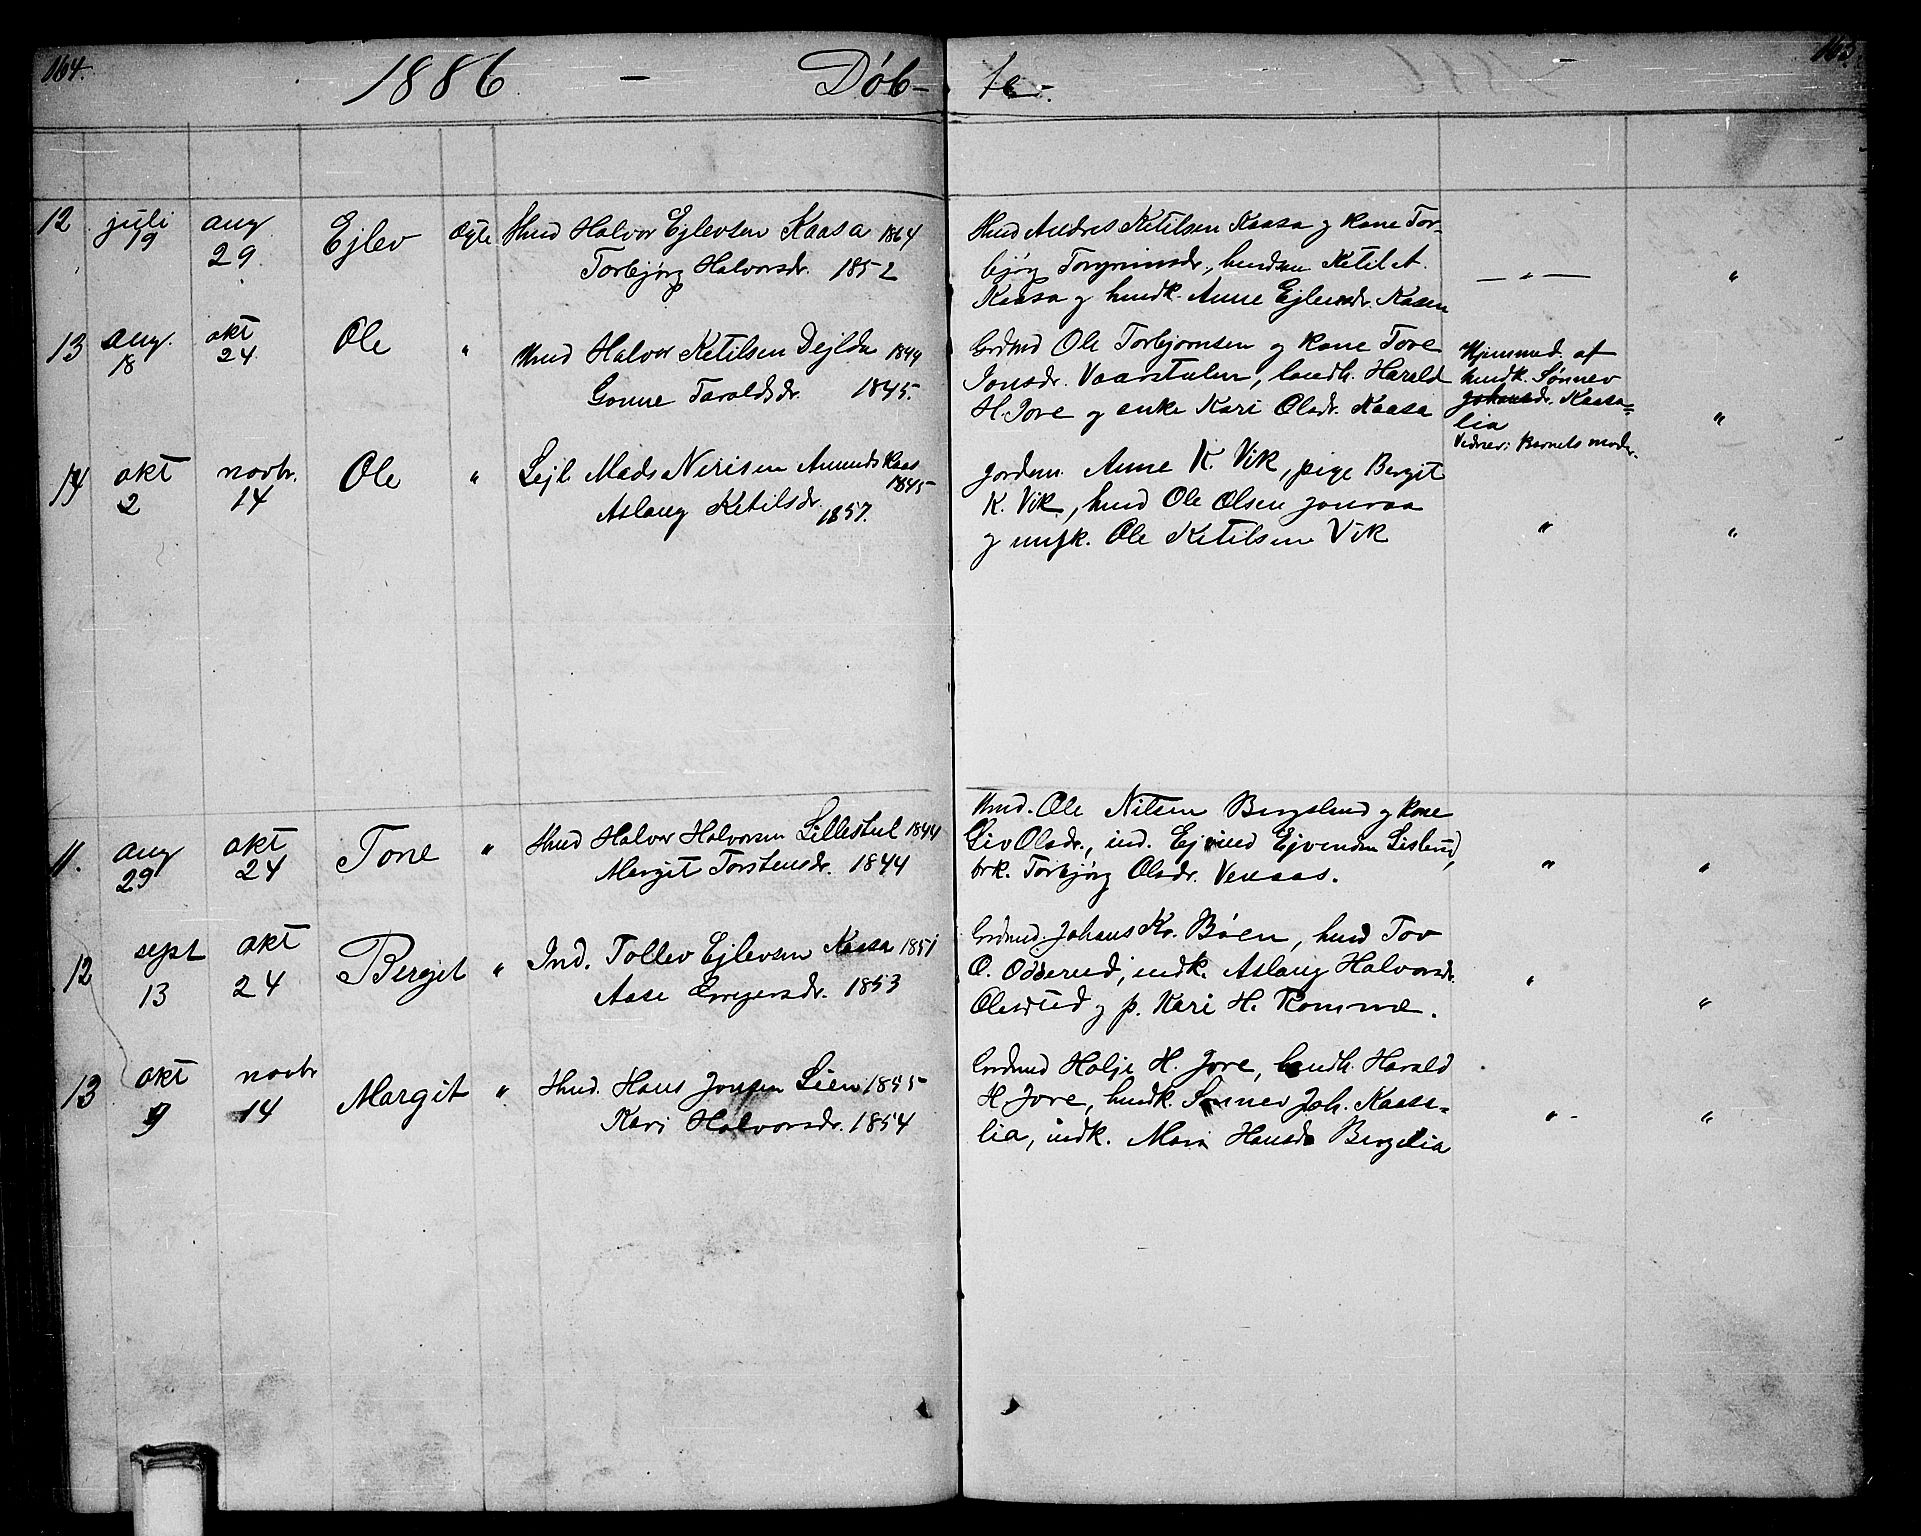 164.
1886 - Døb-
te.
165.
12 juli 19 aug 29. Ejlev Ægte Hmd Halvor Ejlevsen Kaasa 1864
Torbjørg Halvorsdr. 1852
Hmd Andres Ketilsen Kaasa og kone Tor-
bjørg Torgrimsdr., Ketil A.
Kaasa og hmdk. Anne Ejlevsdr. Kaasa
— " — "
13 aug. 18 okt 24. Ole " Hmd Halvor Ketilsen Dejlda 1849
Gonne Taraldsdr. 1845.
Grdmd Ole Torbjørnsen og kone Tove
Jonsdr. Vaarstulen, landh. Harald
H. Jore og enke Kari Olsdr. Kaasa
Hjemmed. af
hmdk. Sønnev
Johansdr. Kaasa=
lia
Vidner: Barnets moder.
"
14 okt 2 novbr. 14 Ole " Sejl. Mads Nirisen Amunds Kaas 1845
Aslaug Ketilsdr. 1857.
jordem. Anne K. Vik, pige Bergit
K. Vik, hmd Ole Olsen
og ungk. Ole Ketilsen Vik
" "
11. aug 29 okt 24 Tone " Hmd Halvor Halvorsen Lillestul 1844
Margit Torstensdr. 1844
Hmd. Ole Nilsen Bergslund og kone
Liv Olsdr., ind. Ejvind Ejvendsen Lislerud,
brk. Torbjørg Olsdr. Venaas.
" "
12 sept 13 okt 24 Bergit " Ind. Tollev Ejlevsen Kaasa 1851
Aase 1853
Grdmd. Johans Kr. Bøen, hmd Tov
O. Odderud, indk. Aslaug Halvorsdr.
Olsrud og p. Kari H. Romme.
" "
13 okt 9 novbr 14 Margit " Hmd. Hans Jonsen Lien 1845
Kari Halvorsdr. 1854
Grdmd Halje H. Jore, landh. Harald
H. Jore, hmdk. Sønnev Joh. Kaasa=
lia, indk. Mari Hansdr Bergelia
" "